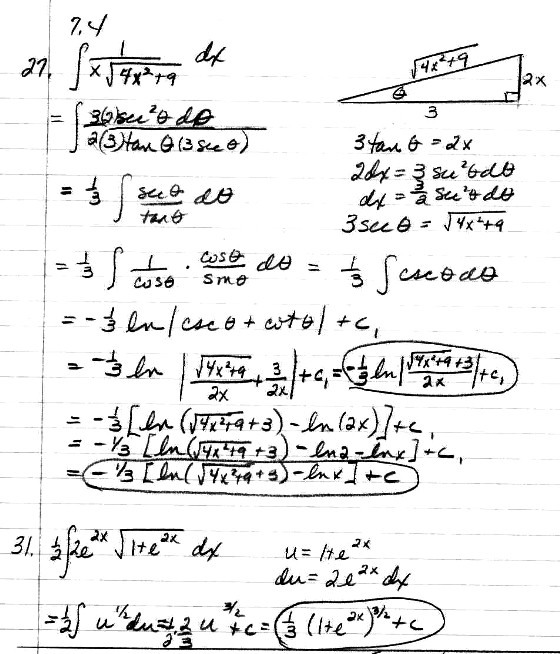 7.4
27. ∫ 1/(x√(4x²+9)) dx
√(4x²+9)
θ
2x
3
= ∫ 3(2)sec²θ dθ / (2(3)tanθ(3secθ))
3tanθ = 2x
2dx = 3 sec²θdθ
= 1/3 ∫ secθ/tanθ dθ
dx = 3/2 sec²θdθ
3secθ = √(4x²+9)
= 1/3 ∫ 1/cosθ · cosθ/sinθ dθ = 1/3 ∫ cscθdθ
= -1/3 ln|cscθ + cotθ| + C₁
= -1/3 ln |√(4x²+9)/2x + 3/2x| + C₁ = -1/3 ln|(√(4x²+9)+3)/2x| + C₁
= -1/3 [ln(√(4x²+9)+3) - ln(2x)] + C₁
= -1/3 [ln(√(4x²+9)+3) - ln2 - lnx] + C₁
= -1/3 [ln(√(4x²+9)+3) - lnx] + C
31. 1/2 ∫2e^(2x) √(1+e^(2x)) dx
u = 1+e^(2x)
du = 2e^(2x) dx
= 1/2 ∫ u^(1/2) du = 1/2 · 2/3 u^(3/2) + C = 1/3 (1+e^(2x))^(3/2) + C